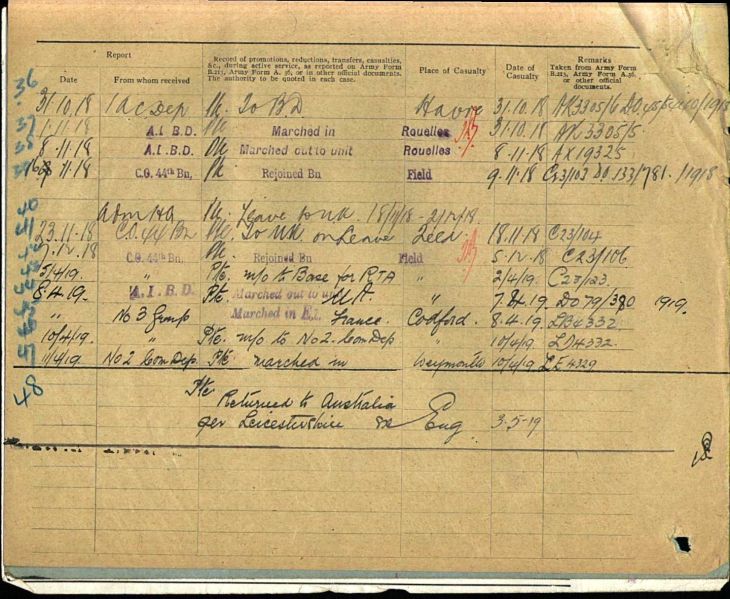 Report
Date
From whom received
Record of promotions, reductions, transfers, casualties, &c., during active service, as reported on Army Form B.213, Army Form A. 36, or in other official documents. The authority to be quoted in each case.
Place of Casualty
Date of Casualty
Remarks
Taken from Army Form B.213, Army Form A.36, or other official documents.
36
31.10.18 1 A C Dep To BD Havre 31.10.18 AK3305/6
37 1.11.18 A.I.B.D. Marched in Rouelles 31.10.18 AK3305/5
8.11.18 A.I.B.D. Marched out to unit Rouelles 8.11.18 AX19325
11.18 C.O. 44th Bn, Rejoined Bn Field 9.11.18 1918
40 Adm HQ Leave to UK
41 23.11.18 C.O. 44 Bn To UK on Leave Field 18.11.18 C23/104
7.12.18 C.O. 44th Bn, Rejoined Bn Field 5.12.18 C23/106
5/4/19. " Pte. m/o to Base for RTA " 2/4/19. C23/123
8.4.19. A.I.B.D. Pte. Marched out to UK " 7.4.19. DO 79/380 1919.
" No 3 Group Marched in Ex. France Codford. 8.4.19. LB4332
10/4/19. " Pte. m/o to No 2. Com Dep " 10/4/19 LD4332.
11/4/19. No 2 Com Dep. Pte marched in Weymouth 10/4/19 LE4329
48 Pte Returned to Australia
per Leicestershire Eng 3.5.19